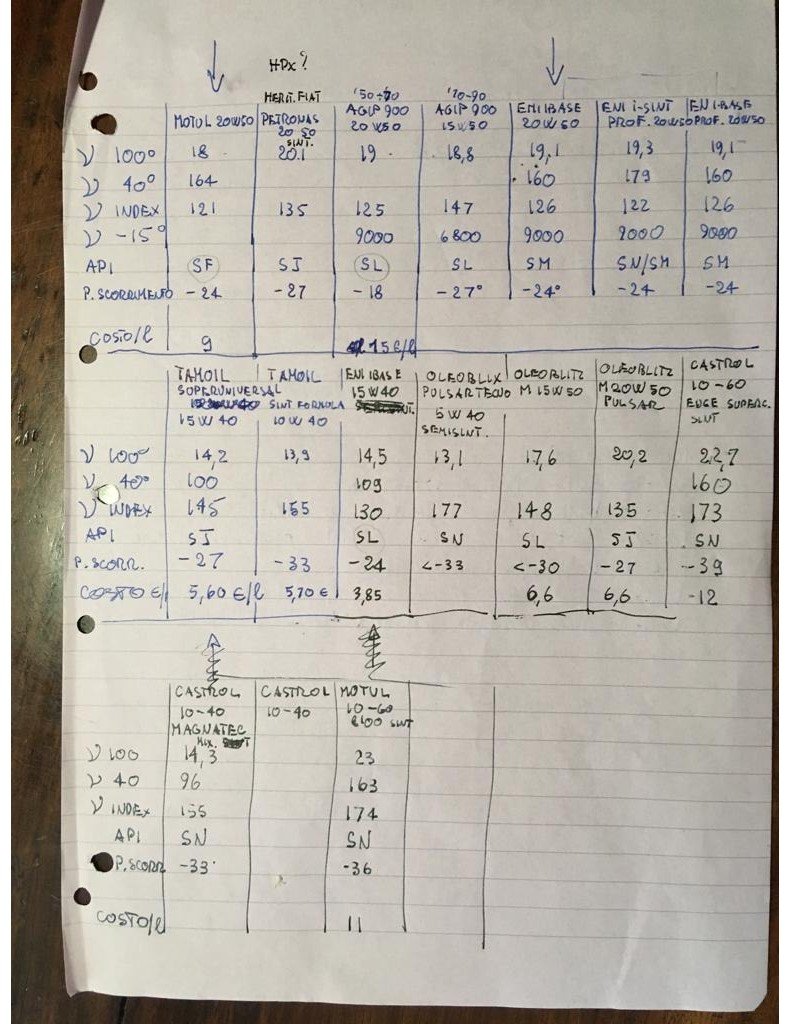 HPX?
HERIT. FIAT '50-70 '70-90
MOTUL 20W50 PETRONAS AGIP 900 AGIP 900 ENI IBASE ENI i-SINT ENI I-BASE
20 50 20W50 15W50 20W50 PROF. 20W50 PROF. 20W50
SINT.
ν 100° 18 20.1 19 18,8 19,1 19,3 19,1
ν 40° 164 160 179 160
ν INDEX 121 135 125 147 126 122 126
ν -15° 9000 6800 9000 9000 9000
API SF SJ SL SL SM SN/SM SM
P. SCORRIMENTO -24 -27 -18 -27° -24° -24 -24
COSTO/l 9 15 €/l
TAMOIL TAMOIL ENI IBASE OLEOBLIX OLEOBLITZ OLEOBLITZ CASTROL
SUPERUNIVERSAL SINT FORMULA 15W40 PULSAR TECNO M 15W50 M 20W50 10-60
15W40 10W40 5W40 PULSAR EDGE SUPERC.
SEMISINT. SINT
ν 100° 14,2 13,9 14,5 13,1 17,6 20,2 22,7
ν 40° 100 109 160
ν INDEX 145 155 130 177 148 135 173
API SJ SL SN SL SJ SN
P. SCORR. -27 -33 -24 <-33 <-30 -27 -39
COSTO €/ 5,60 €/l 5,70 € 3,85 6,6 6,6 -12
CASTROL CASTROL MOTUL
10-40 10-40 10-60
MAGNATEC 8100 SINT
ν 100 14,3 23
ν 40 96 163
ν INDEX 155 174
API SN SN
P. SCORR -33 -36
COSTO/l 11